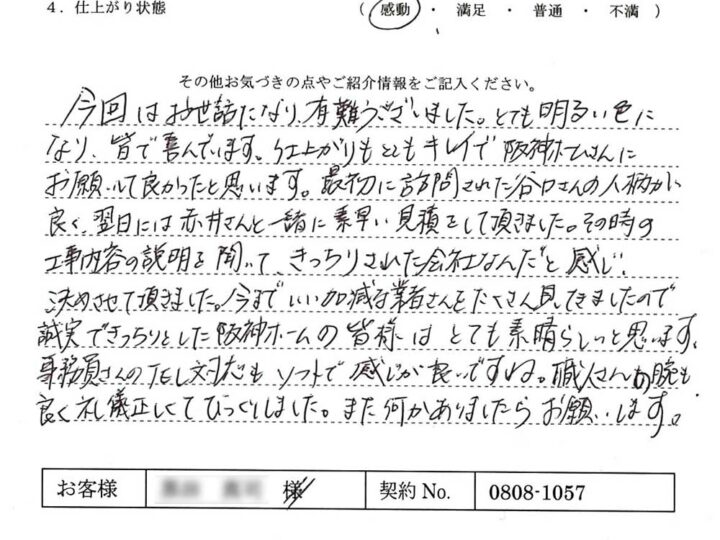 4. 仕上がり状態 ( 感動 ・ 満足 ・ 普通 ・ 不満 )
その他お気づきの点やご紹介情報をご記入ください。
今回はお世話になり、有難うございました。とても明るい色に
なり、皆で喜んでいます。仕上がりもとてもキレイで阪神ホームさんに
お願いして良かったと思います。最初に訪問された谷口さんの人柄が
良く、翌日には赤井さんと一緒に素早い見積をして頂きました。その時の
工事内容の説明を聞いて、きっちりされた会社なんだと感じ、
決めさせて頂きました。今までいい加減な業者さんをたくさん見てきましたので
誠実できっちりとした阪神ホームの皆様はとても素晴らしいと思います。
事務員さんのTEL対応もソフトで感じが良いですね。職人さんの腕も
良く礼儀正しくてびっくりしました。また何かありましたらお願いします。
お客様 様 契約 No. 0808-1057